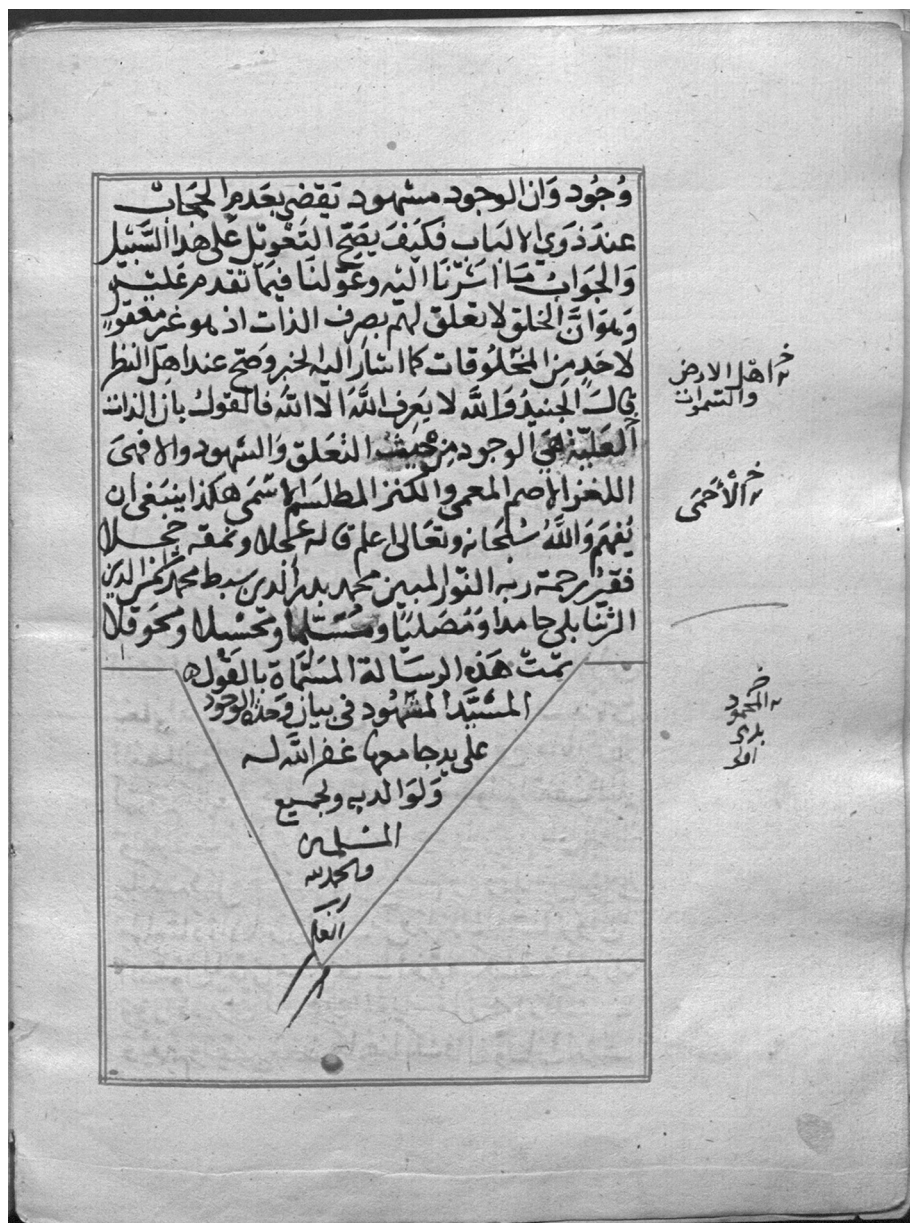 وُجُود وَان الوجود مشهود يَقضي بعَدم الحجاب
عندَ ذوَي الالبَاب فكَيفَ يَصّح التَعْويْل عَلى هَذا السَّبيْل
وَالجَوابُ مَا اشَرْنَا اليْه وعَوّلنَا فيمَا تقدم عَليْه
وَهوَ انَّ الخلق لا تعَلق لهم بصرف الذات اذ هو غير معَقولٍ
لاحَدٍ مِنَ المخلُوقات كما اشَار اليه الخبر وَصَحّ عند اهَل النظر
قالَ الجنيد وَاللَّه لا يَعَرف اللَّهَ الا اللَّه فالقولُ بانّ الذات
العَليّة هَي الوجود مِن حيثُ التعَلق وَالشهود والا فهىَ
اللغز الاصم المعمى والكنز المطلسَم الاسْمَى هكَذا يَنبَغي ان
يُفهَم وَاللَّهُ سُبْحَانه وتعَالى اعلم قاله عَجلا ونمقه خجلا
فقيرُ رحمة ربه النّور المبين محمد بدر الدين سبط محمد شمس الدين
الرُّنبابلي حامدا وَمُصَليًا ومُسَلّما ومحَسْبلا ومحَوقلا
تمتْ هَذه الرسَالة المسَمَّاة بالقَول
المشيَّد المشهُود في بيان وَحدة الوجود
على يد جامعهَا غفر اللَّه لــه
وَلوَالديه ولجميع
المسْلمين
والحمد لله
رب
العا
خ اهَل الارض
والسَّموات
خ الْأَحْمَى
خ المحمود